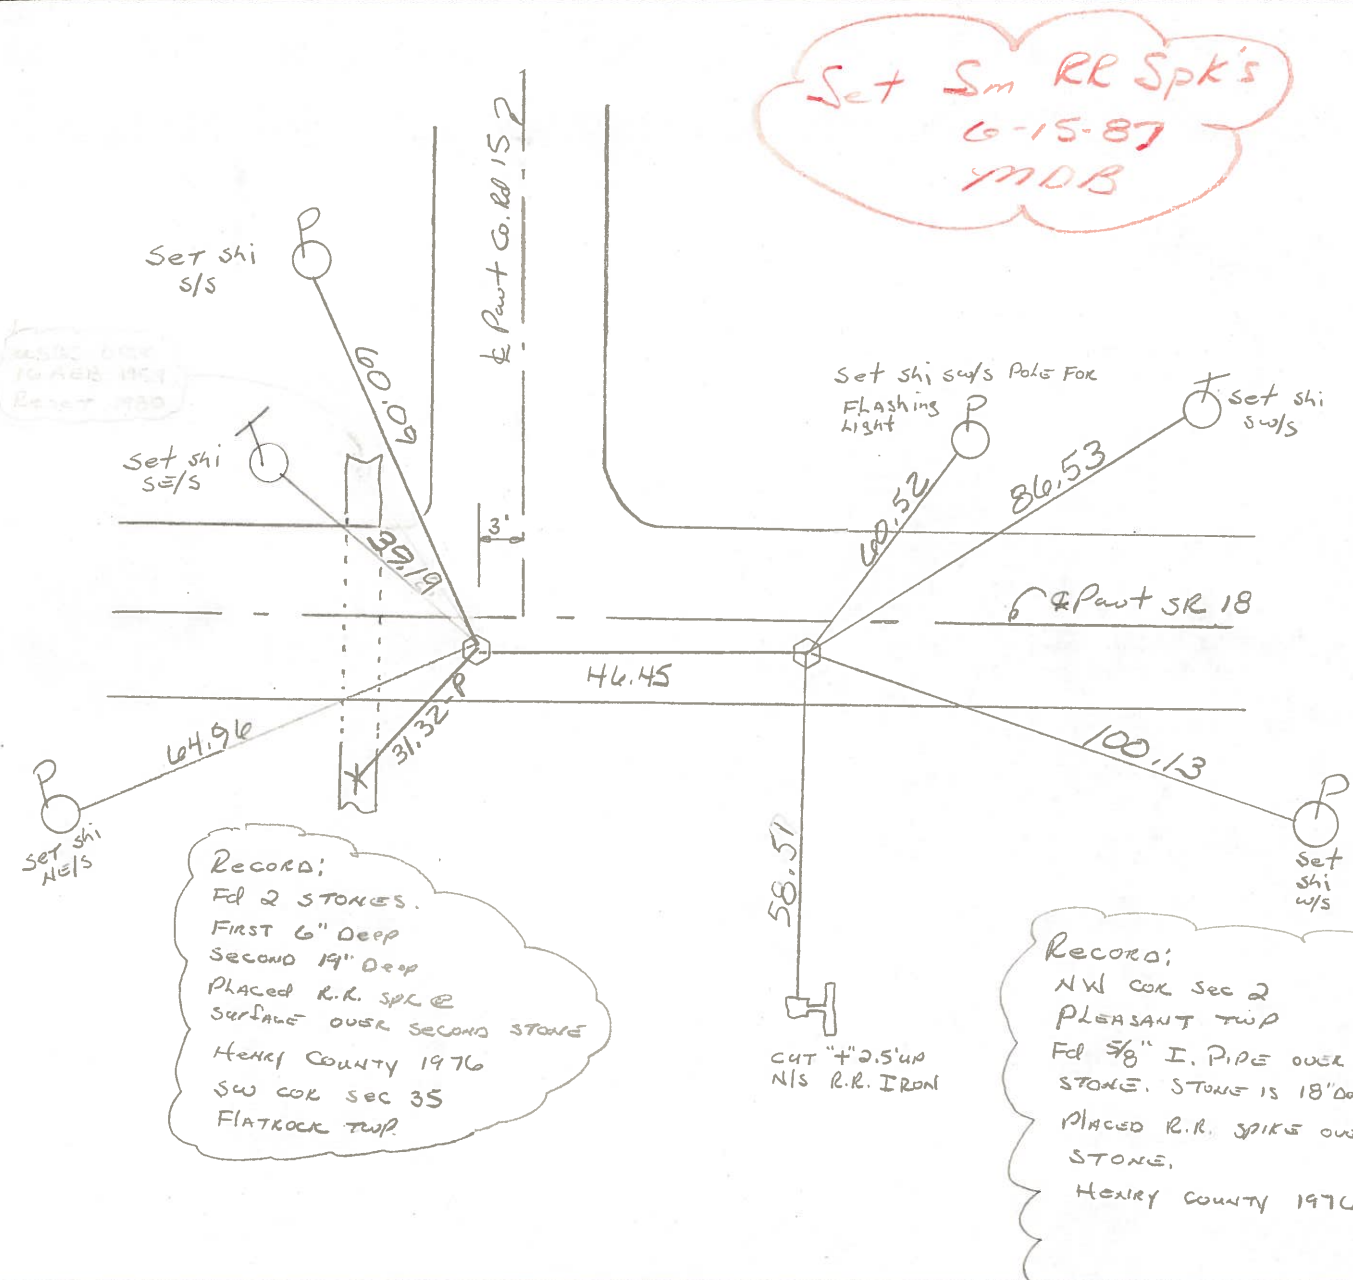 Set Sm RR Spk's
6-15-87
MDB
℄ Pavt Co. Rd 15
P
Set shi
S/S
60.09
Reset 1980
Set shi
SE/S
39.19
3'
Set shi sw/s Pole For
Flashing
Light
P
60.52
Set shi
sw/s
86.53
℄ Pavt SR 18
46.45
31.32-P
64.96
P
Set shi
NE/S
100.13
P
Set
shi
w/s
58.51
Cut "+" 2.5' up
N/S R.R. Iron
Record:
Fd 2 Stones.
First 6" Deep
Second 19" Deep
Placed R.R. Spk @
Surface over second stone
Henry County 1976
SW cor Sec 35
Flatrock Twp.
Record:
NW cor Sec 2
Pleasant Twp
Fd 5/8" I. Pipe over
Stone. Stone is 18" De
Placed R.R. Spike ove
Stone.
Henry County 197